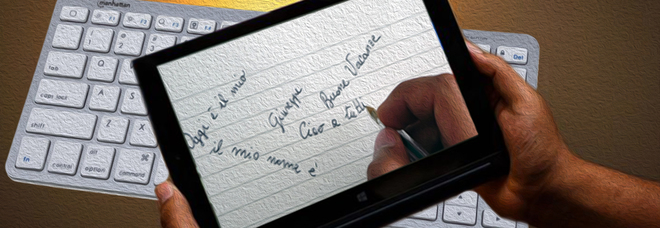 manhattan
Del
tab
caps lock
A
S
shift
Z
fn
control
option
command
Oggi è il mio
il mio nome è
Giuseppe
Buone Vacanze
Ciao a tutti